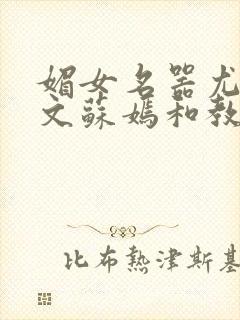 媚女名器尤
文蘇媽和教
比布熱津斯基